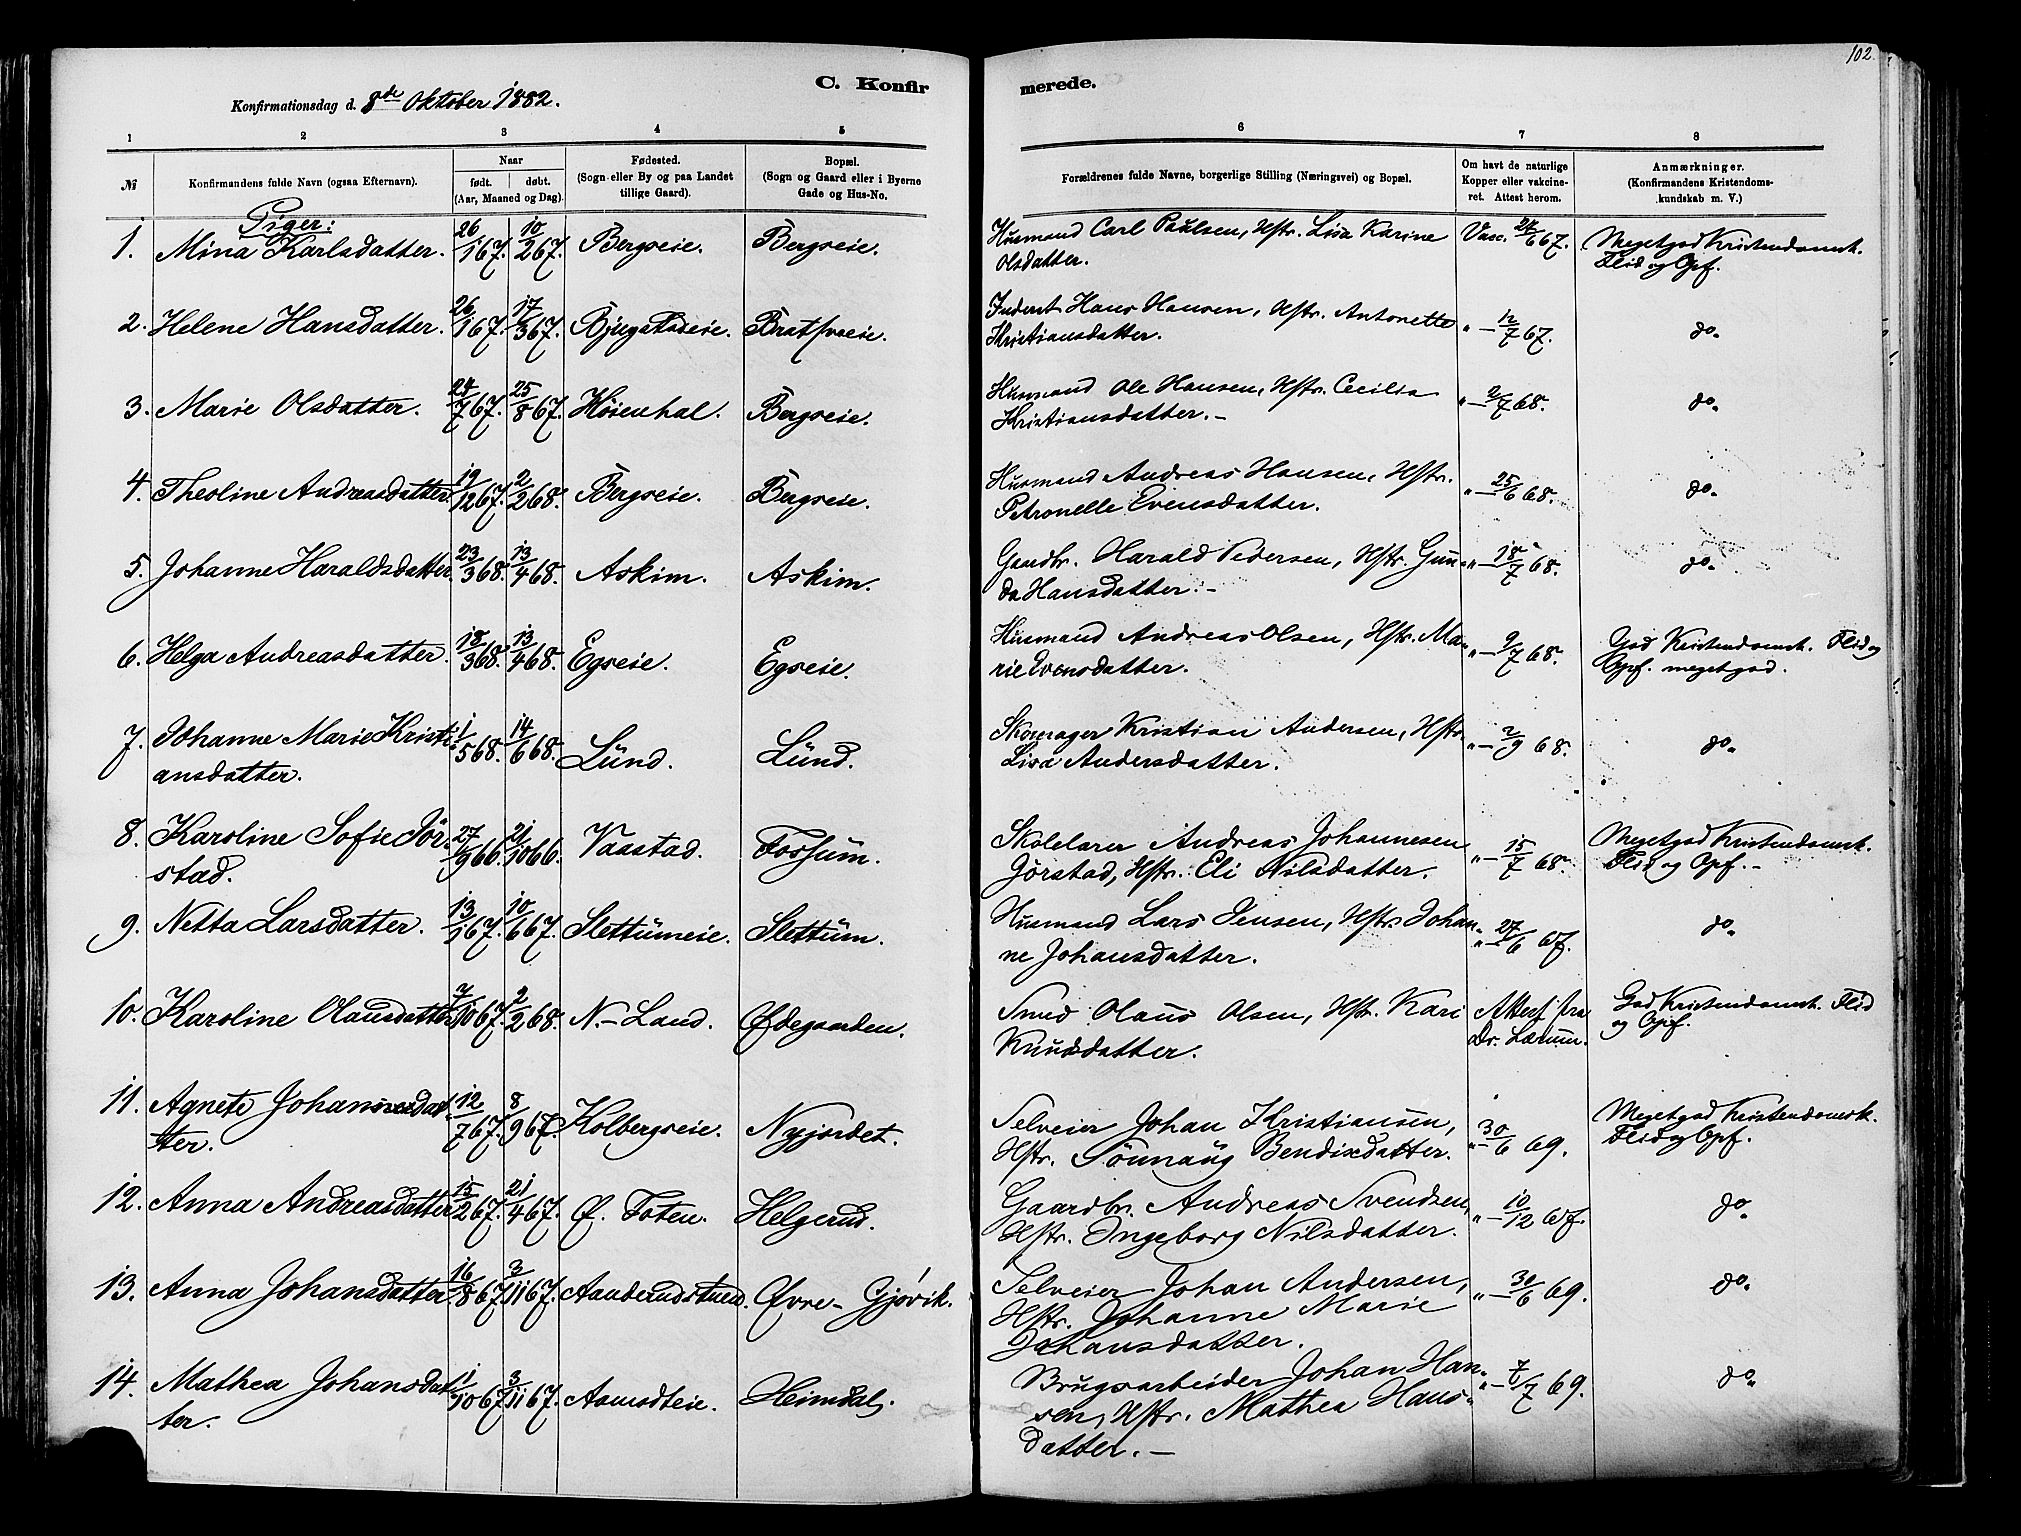 102.
C. Konfir merede.
Konfirmationsdag d. 8de Oktober 1882.
1 2 3 4 5 6 7 8
№ Konfirmandens fulde Navn (ogsaa Efternavn).
Naar
født. døbt.
(Aar, Maaned og Dag).
Fødested.
(Sogn eller By og paa Landet
tillige Gaard).
Bopæl.
(Sogn og Gaard eller i Byerne
Gade og Hus-No.
Forældrenes fulde Navne, borgerlige Stilling (Næringsvei) og Bopæl.
Om havt de naturlige
Kopper eller vakcine-
ret. Attest herom.
Anmærkninger.
(Konfirmandens Kristendoms-
kundskab m. V.)
Piger:
1. Mina Karlsdatter. 26/1 67. 10/2 67. Bergseie. Bergseie. Husmand Carl Paulsen, Hstr. Lisa Karine Vacc. 24/6 67. Megetgod Kristendomsk.
Olsdatter. Flid og Opf.
2. Helene Hansdatter. 26/1 67. 17/3 67. Bjugstadeie. Bratsveie. Inderst Hans Hansen, Hstr. Antonette " — 12/7 67. do.
Kristiansdatter.
3. Marie Olsdatter. 24/7 67. 25/8 67. Høienhal. Bergseie. Husmand Ole Hansen, Hstr. Cecilia " — 2/7 68. do.
Kristiansdatter. —
4. Theoline Andreasdatter. 19/12 67. 2/2 68. Bergseie. Bergseie. Husmand Andreas Hansen, Hstr. " — 25/6 68. do.
Petronelle Evensdatter.
5. Johanne Haraldsdatter. 23/3 68. 13/4 68. Askim. Askim. Gaudbr. Harald Pedersen, Hstr. Gun- " — 18/7 68. do.
da Hansdatter. —
6. Helga Andreasdatter. 18/3 68. 13/4 68. Egseie. Egseie. Husmand Andreas Olsen, Hstr. Ma- " — 9/7 68. God Kristendomsk. Flid og
rie Evensdatter. Opf. megetgod.
7. Johanne Marie Kristi- 1/5 68. 14/6 68. Lund. Lund. Skomager Kristian Andersen, Hstr. " — 2/9 68. do.
ansdatter. Lisa Andersdatter.
8. Karoline Sofie Jør- 27/9 66. 21/10 66. Vaastad. Fossum. Skolelærer Andreas Johannesen " — 15/7 68. Megetgod Kristendomsk.
stad. Jørstad, Hstr. Eli Nilsdatter. Flid og Opf. —
9. Netta Larsdatter. 13/1 67. 10/6 67. Slettumeie. Slettum. Husmand Lars Jensen, Hstr. Johan- " — 27/6 67. do.
ne Johansdatter.
10. Karoline Olausdatter. 7/10 67. 2/2 68. N.-Land. Ødegaarden. Smed Olaus Olsen, Hstr. Kari Attest fra God Kristendomsk. Flid
Knudsdatter. Dr. Lærum. og Opf.
11. Agnete Johannesdat- 12/7 67. 8/9 67. Kolbergseie. Nyjordet. Selveier Johan Kristiansen, " — 30/6 69. Megetgod Kristendomsk.
ter. Hstr. Sønnaug Bendixdatter. Flid og Opf.
12. Anna Andreasdatter. 15/2 67. 21/4 67. Ø. Toten. Helgerud. Gaardbr. Andreas Svendsen, " — 10/12 67. do.
Hstr. Ingeborg Nilsdatter.
13. Anna Johansdatter. 16/8 67. 3/11 67. Aanderudstuen. Øvre-Gjøvik. Selveier Johan Andersen, " — 30/6 69. do.
Hstr. Johanne Marie
Johansdatter.
14. Mathea Johansdat- 1/10 67. 3/11 67. Aamodteie. Heimdal. Brugsarbeider Johan Han- " — 7/7 69. do.
ter. sen, Hstr. Mathea Hans-
datter. —